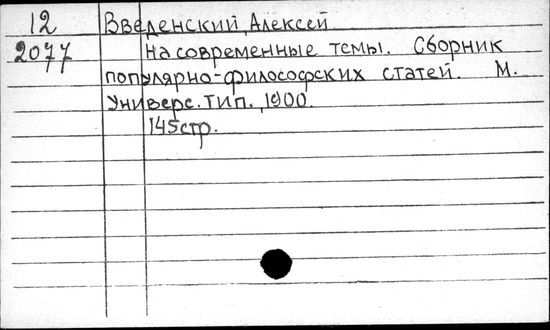 12 Введенский, Алексей
2077 На современные темы. Сборник
популярно-философских статей. М.
Универс. тип., 1900.
145стр.